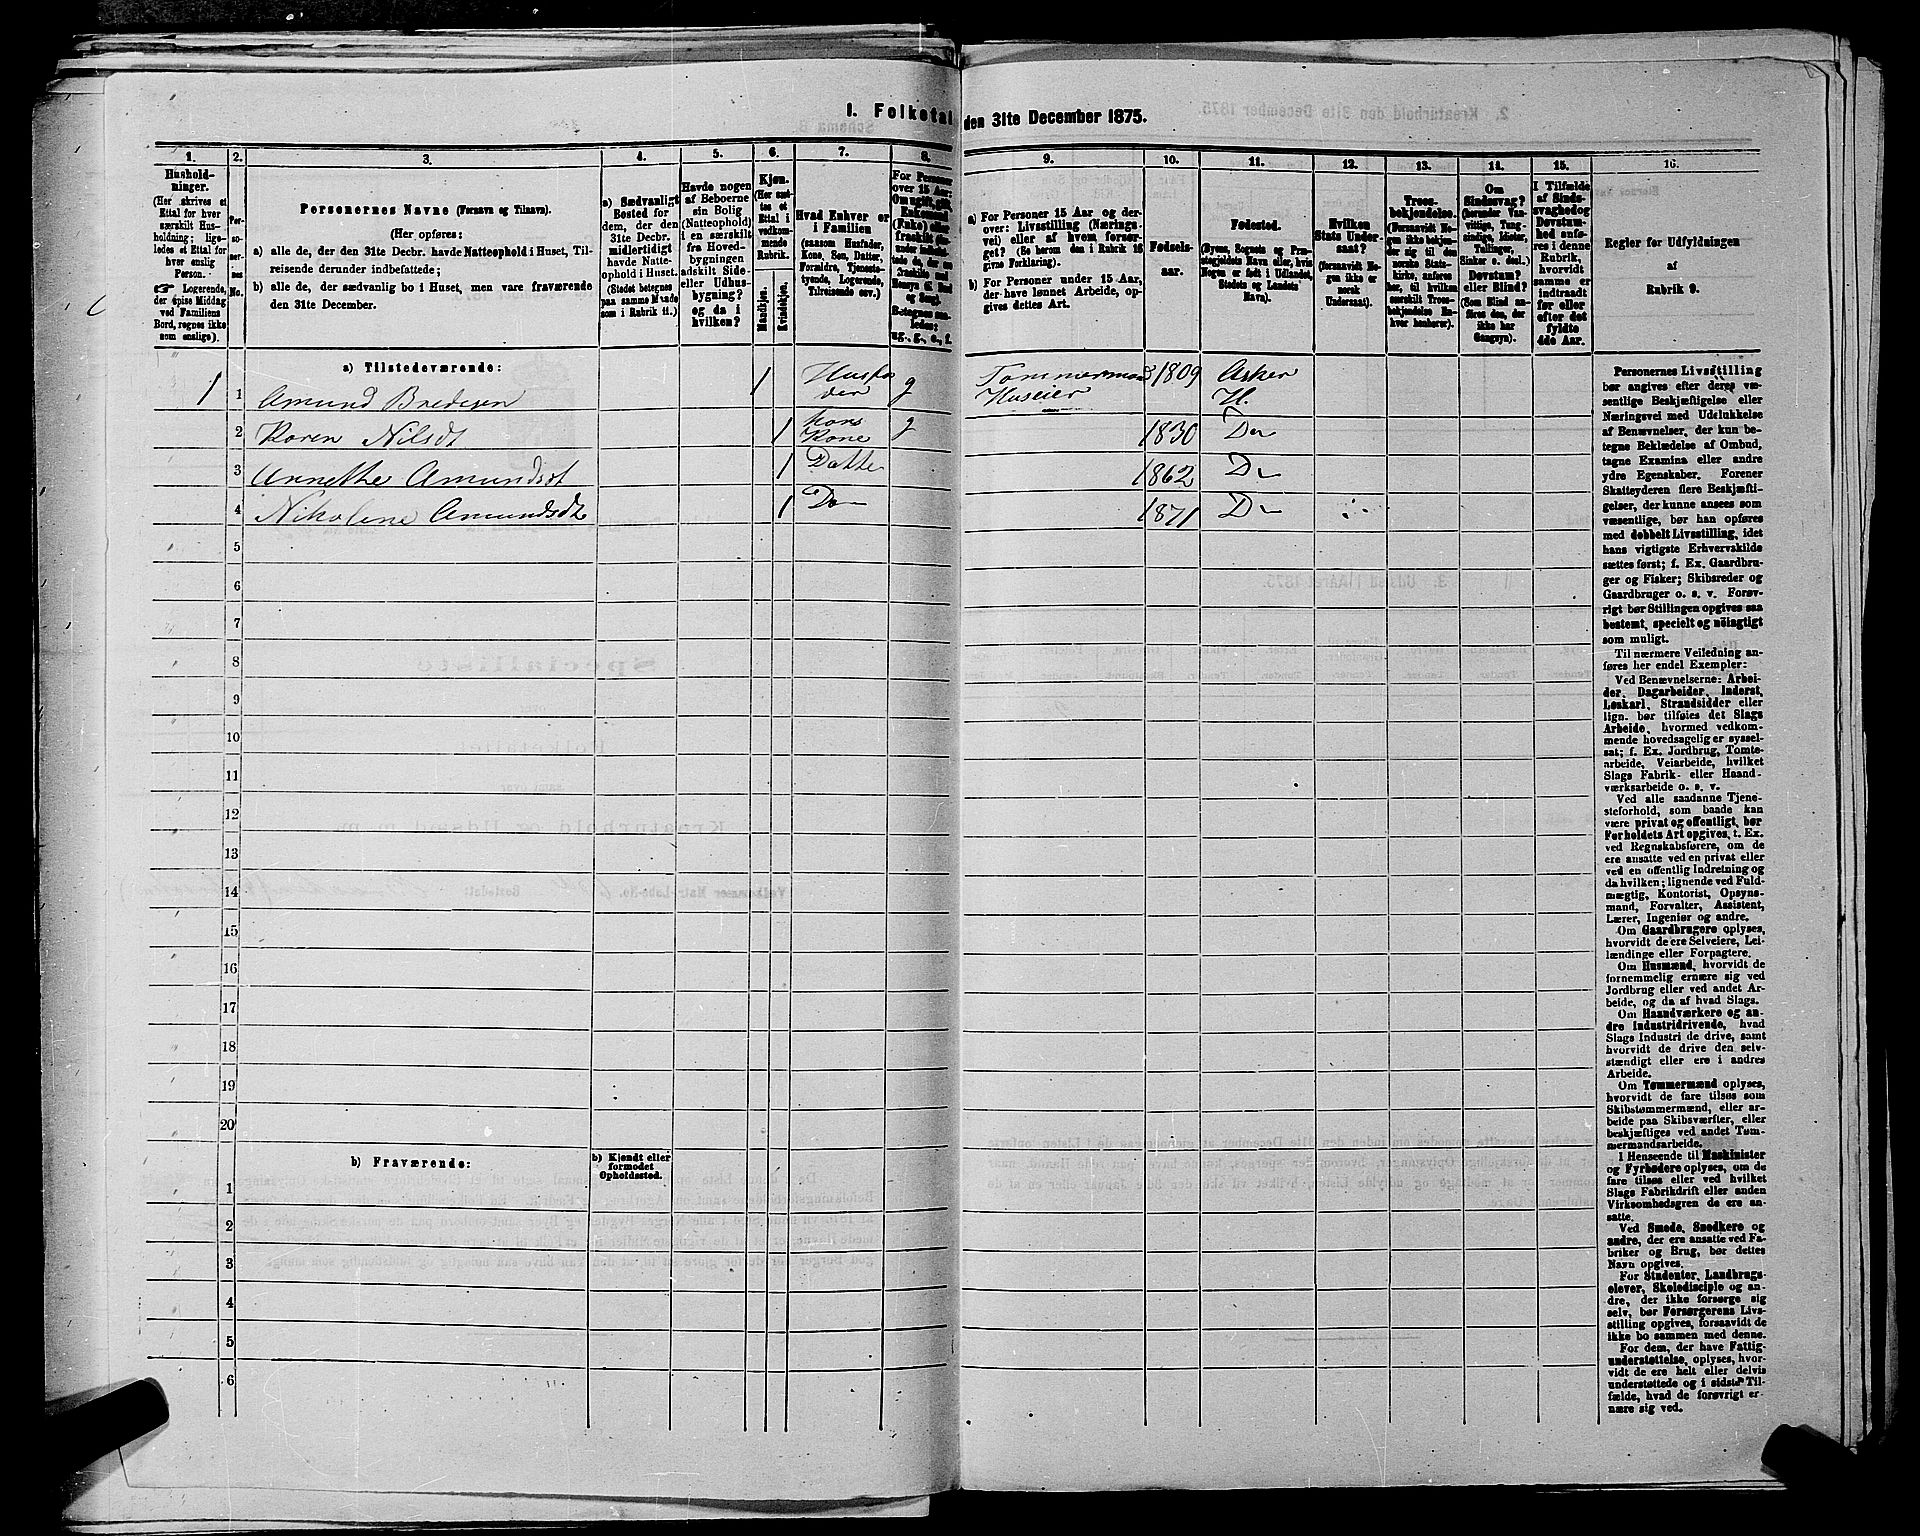 1. Folketal den 31te December 1875.
1.
2.
3.
4.
5.
6.
7.
8.
9.
10.
11.
12.
13.
14.
15.
16.
Hushold-
ninger.
(Her skrives et
Ettal for hver
særskilt Hus-
holdning; lige-
ledes et Ettal for
hver enslig
Person.
☞ Logerende,
der spise Middag
ved Familiens
Bord, regnes ikke
som enslige).
Per-
so-
ner-
nes
No.
Personernes Navne (Fornavn og Tilnavn).
(Her opføres:
a) alle de, der den 31te Decbr. havde Natteophold i Huset, Til-
reisende derunder indbefattede;
b) alle de, der sædvanlig bo i Huset, men vare fraværende
den 31te December.
a) Sædvanligt
Bosted for
dem, der den
31te Decbr.
midlertidigt
havde Natte-
ophold i Huset.
(Stedet betegnes
paa samme Maade
som i Rubrik 11.)
Havde nogen
af Beboerne
sin Bolig
(Natteophold)
i en særskilt
fra Hoved-
bygningen
adskilt Side-
eller Udhus-
bygning?
og da i
hvilken?
Kjøn.
(Her sæt-
tes et
Ettal i
vedkom-
mende
Rubrik.
Mandkjøn.
Kvindekjøn.
Hvad Enhver er
i Familien
(saasom Husfader,
Kone, Søn, Datter,
Forældre, Tjeneste-
tyende, Logerende,
Tilreisende osv.)
For Personer
over 15 Aar:
Om ugift, gift,
Enkemand
(Enke) eller
fraskilt
Betegnes saa-
ledes:
ug., g., e., f.
a) For Personer 15 Aar og der-
over: Livsstilling (Nærings-
vei) eller af hvem forsør-
get? (Se herom den i Rubrik 16
givne Forklaring).
b) For Personer under 15 Aar,
der have lønnet Arbeide, op-
gives dettes Art.
Fødsels-
aar.
Fødested.
(Byens, Sognets og Præ-
stegjeldets Navn eller, hvis
Nogen er født i Udlandet,
Stedets og Landets
Navn).
Hvilken
Stats Under-
saat?
(forsaavidt No-
gen ikke er
norsk
Undersaat).
Troes-
bekjendelse.
(Forsaavidt No-
gen ikke bekjen-
der sig til den
norske Stats-
kirke, anføres
her, til hvilken
særskilt Troes-
bekjendelse En-
hver henhører).
Om
Sindssvag?
(herunder Van-
vittige, Tung-
sindige, Idioter,
Tullinger,
Sinker o. desl.)
Døvstum?
eller Blind?
(Som Blind an-
føres den, der
ikke har
Gangsyn).
I Tilfælde
af Sinds-
svaghed og
Døvstum-
hed anfø-
res i denne
Rubrik,
hvorvidt
samme er
indtraadt
før eller
efter det
fyldte
4de Aar.
Regler for Udfyldningen
af
Rubrik 9.
a) Tilstedeværende:
1 1 Amund Bredesen 1 Husfa der g Tømmermand Huseier 1809 Asker H.
2 Karen Nilsdt 1 hans Kone g 1830 Do
3 Annethe Amundsdt 1 Datte 1862 Do
4 Nikoline Amundsdt 1 Do 1871 Do
5
6
7
8
9
10
11
12
13
14
15
16
17
18
19
20
b) Fraværende:
b) Kjendt eller
formodet
Opholdssted.
1
2
3
4
5
6
Personernes Livsstilling
bør angives efter deres væ-
sentlige Beskjæftigelse eller
Næringsvei med Udelukkelse
af Benævnelser, der kun be-
tegne Beklædelse af Ombud,
tagne Examina eller andre
ydre Egenskaber. Forener
Skatteyderen flere Beskjæfti-
gelser, der kunne ansees som
væsentlige, bør han opføres
med dobbelt Livsstilling, idet
hans vigtigste Erhvervskilde
sættes først; f. Ex. Gaardbru-
ger og Fisker; Skibsreder og
Gaardbruger o. s. v. Forøv-
rigt bør Stillingen opgives saa
bestemt, specielt og nöiagtigt
som muligt.
Til nærmere Veiledning an-
føres her endel Exempler:
Ved Benævnelserne: Arbei-
der, Dagarbeider, Inderst,
Løskarl, Strandsidder eller
lign. bør tilføies det Slags
Arbeide, hvormed vedkom-
mende hovedsagelig er syssel-
sat; f. Ex. Jordbrug, Tomte-
arbeide, Veiarbeide, hvilket
Slags Fabrik- eller Haand-
værksarbeide o. s. v.
Ved alle saadanne Tjene-
steforhold, som baade kan
være privat og offentligt, bør
Forholdets Art opgives, t. Ex.
ved Regnskabsførere, om de
ere ansatte ved en privat eller
ved en offentlig Indretning og
da hvilken; lignende ved Fuld-
mægtig, Kontorist, Opsyns-
mand, Forvalter, Assistent,
Lærer, Ingeniør og andre.
Om Gaardbrugere oplyses,
hvorvidt de ere Selveiere, Lei-
lændinge eller Forpagtere.
Om Husmænd, hvorvidt de
fornemmelig ernære sig ved
Jordbrug eller ved andet Ar-
beide, og da af hvad Slags.
Om Haandværkere og an-
dre Industridrivende, hvad
Slags Industri de drive, samt
hvorvidt de drive den selv-
stændigt eller ere i andres
Arbeide.
Om Tømmermænd oplyses,
hvorvidt de fare tilsøs som
Skibstømmermænd, eller ar-
beide paa Skibsværfter, eller
beskjæftiges ved andet Tøm-
mermandsarbeide.
I Henseende til Maskinister
og Fyrbødere oplyses, om de
fare tilsøs eller ved hvilket
Slags Fabrikdrift eller anden
Virksomhedsgren de ere an-
satte.
Ved Smede, Snedkere og
andre, der ere ansatte ved Fa-
briker og Brug, bør dettes
Navn opgives.
For Studenter, Landbrugs-
elever, Skoledisciple og an-
dre, der ikke forsørge sig
selv, bør Forsørgerens Livs-
stilling opgives, forsaavidt de
ikke bo sammen med denne.
For dem, der have Fattig-
understøttelse, oplyses, hvor-
vidt de ere helt eller delvis
understøttede og i sidste Til-
fælde, hvad de forøvrigt er-
nære sig ved.